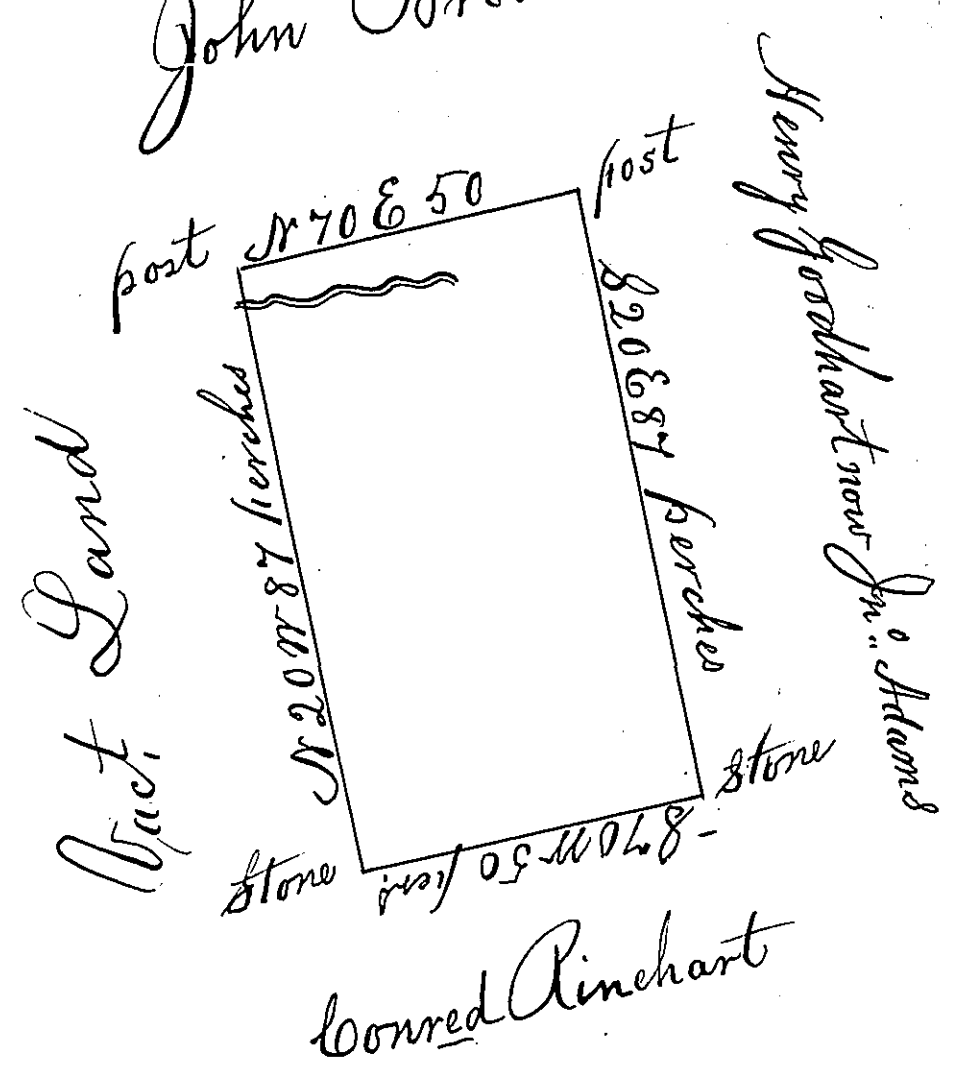 John
post
N 70 E 50
post
Henry Goodhart now Jno. Adams
S 20 E 87 perches
N 20 W 87 perches
Vact. Land
stone
S 70 W 50 pers.
stone
Conred Rinehart